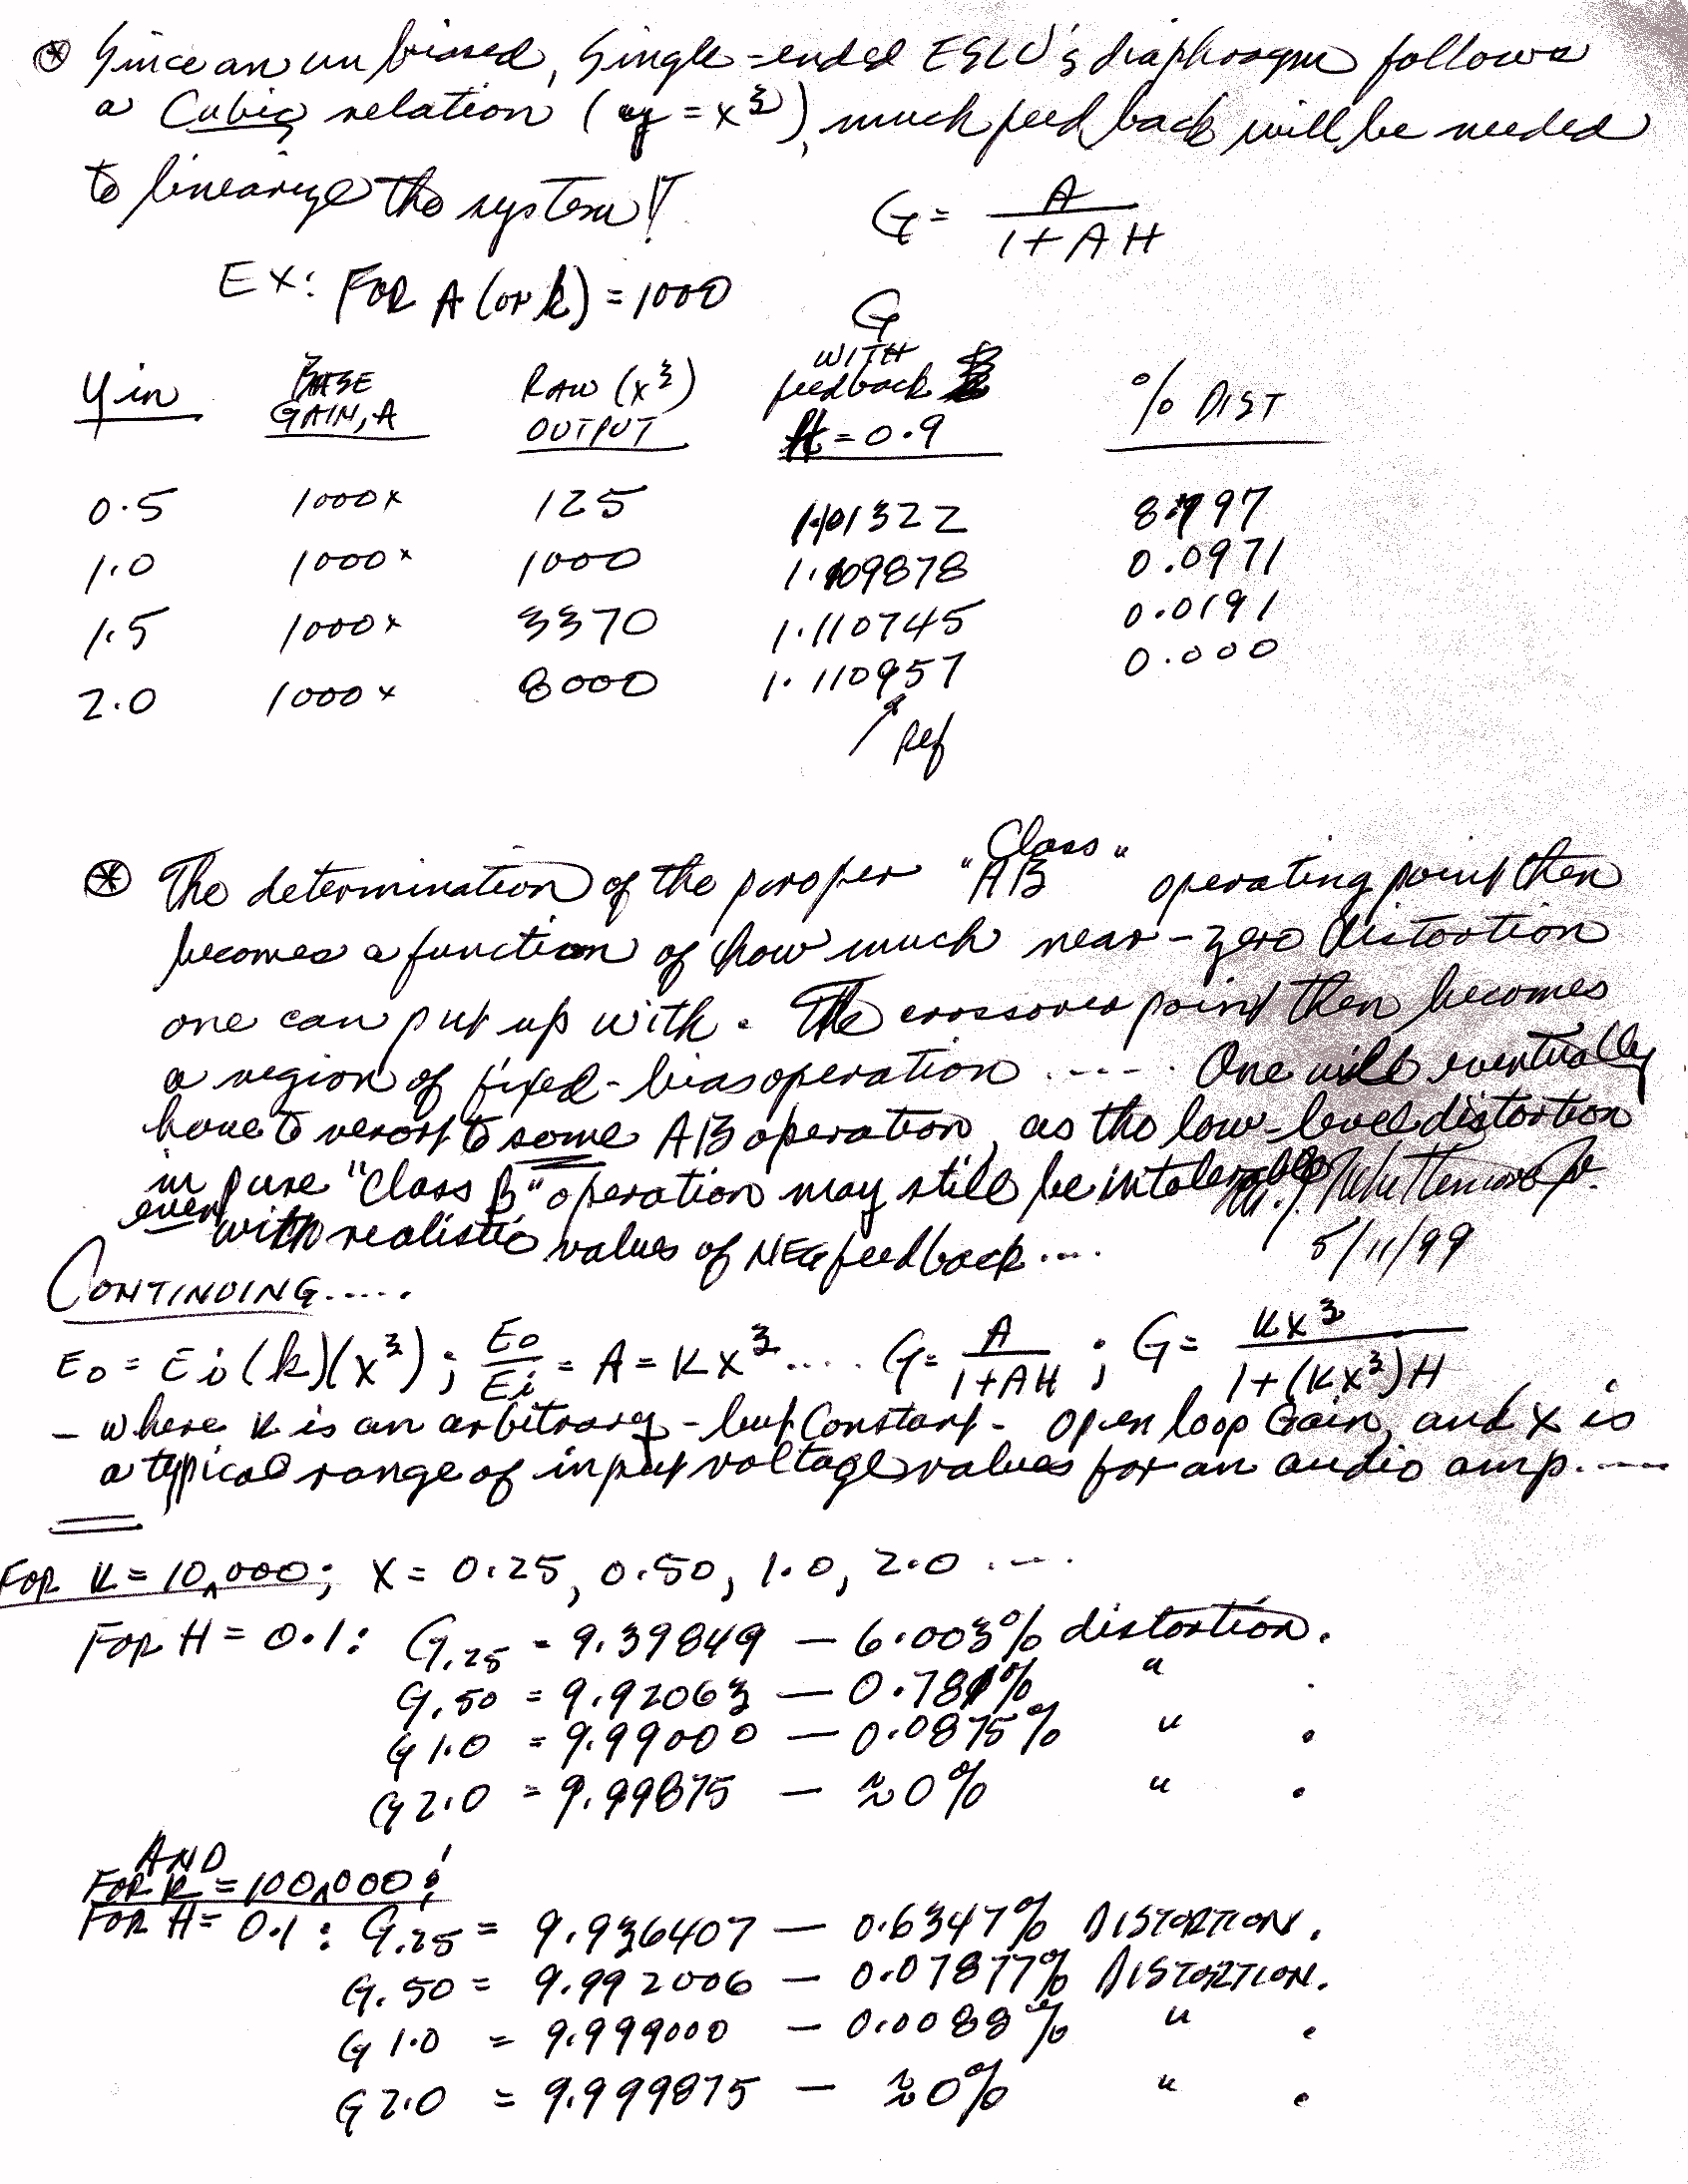 ⊛ Since an unbiased, single-ended ESLU's diaphragm follows
a Cubic relation (y = x³), much feedback will be needed
to linearize the system!!
G = A / (1 + AH)
EX: FOR A (or k) = 1000
Yin | BASE GAIN, A | RAW (x³) OUTPUT | G WITH feedback H = 0.9 | % DIST
0.5 | 1000x | 125 | 1.101322 | 8.797
1.0 | 1000x | 1000 | 1.109878 | 0.0971
1.5 | 1000x | 3370 | 1.110745 | 0.0191
2.0 | 1000x | 8000 | 1.110957 | 0.000
Ref
⊛ The determination of the proper "Class AB" operating point then
becomes a function of how much near-zero distortion
one can put up with. The crossover point then becomes
a region of fixed-bias operation ..... One will eventually
have to resort to some AB operation, as the low-level distortion
in pure "Class B" operation may still be intolerable
even with realistic values of NEG feedback....
5/11/99
CONTINUING.....
Eo = Ei (k)(x³); Eo/Ei = A = Kx³..... G = A / (1 + AH); G = Kx³ / (1 + (Kx³)H)
- where K is an arbitrary - but Constant - open loop Gain, and X is
a typical range of input voltage values for an audio amp.....
FOR K = 10,000; X = 0.25, 0.50, 1.0, 2.0 ....
FOR H = 0.1: G.25 = 9.39849 — 6.003% distortion.
G.50 = 9.92063 — 0.781% " .
G1.0 = 9.99000 — 0.0875% " .
G2.0 = 9.99875 — ≈0% " .
AND
FOR K = 100,000:
FOR H = 0.1: G.25 = 9.936407 — 0.6347% DISTORTION.
G.50 = 9.992006 — 0.07877% DISTORTION.
G1.0 = 9.999000 — 0.0088% " .
G2.0 = 9.999875 — ≈0% " .